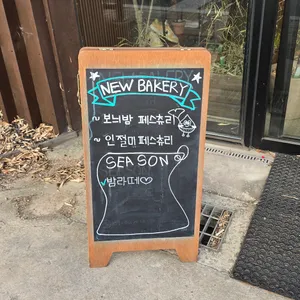 NEW BAKERY
~ 보늬밤 페스츄리
~ 인절미페스츄리
SEASON
✓밤라떼♡